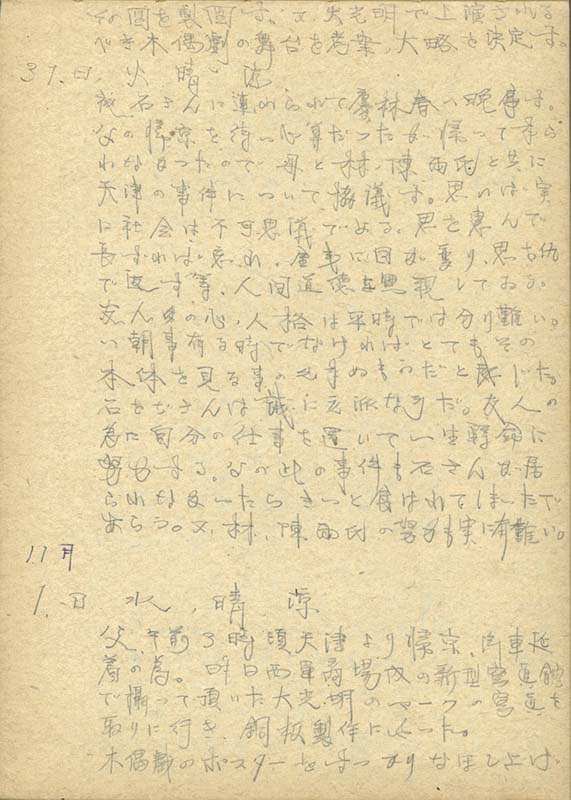 の図を製図す。又、大光明で上演される
べき木偶劇の舞台を考案、大略を決定す。
31.日、火 晴
石さんに連れられて
父の帰京を待つ心算だったが帰って来ら
れなかったので母と林、陳両氏と共に
天津の事件について協議す。思いば実
に社会は不可思議である。恩を恵んで
長ずれば忘れ、金事に目が変り、恩を仇
で返す等、人間道徳を無視してゐる。
友人の心、人格は平時では分り難い。
い朝事有る時でなければとてもその
本体を見る事の出来ぬものだと感じた。
石をぢさんは誠に立派な方だ。友人の
為に自分の仕事を置いて一生懸命に
努力する。父の此の事件も石さんが居
られなかったらきっと食はれてしまったで
あらう。又、林、陳両氏の努力も実に有難い。
11月
1.日 水、晴 涼
父、午前3時頃天津より帰京、汽車延
着の為。昨日西単商場内の新型写真館
で撮って頂いた大光明のマークの写真を
取りに行き、銅板製作にやった。
木偶戯のポスターをすっかりなほし上げ